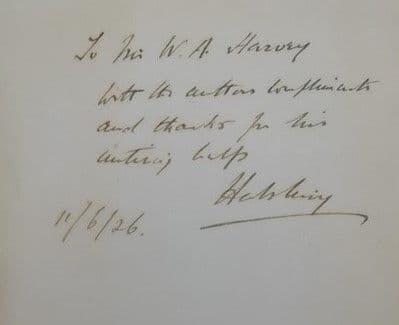 To Mr W. A. Harvey
with the authors compliments
and thanks for his
untiring help
11/6/26.